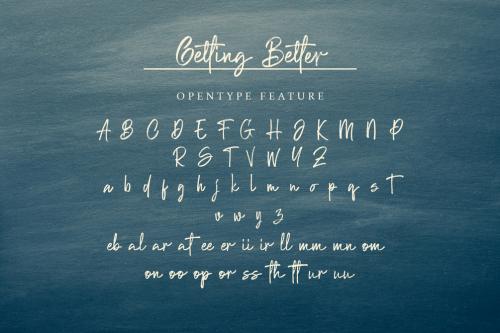 Getting Better
OPENTYPE FEATURE
A B C D E F G H J K M N P
R S T V W Y Z
a b d f g h j k l m n o p q s t
v w y z
eb al ar at ee er ii ir ll mm mn om
on oo op or ss th tt ur uu